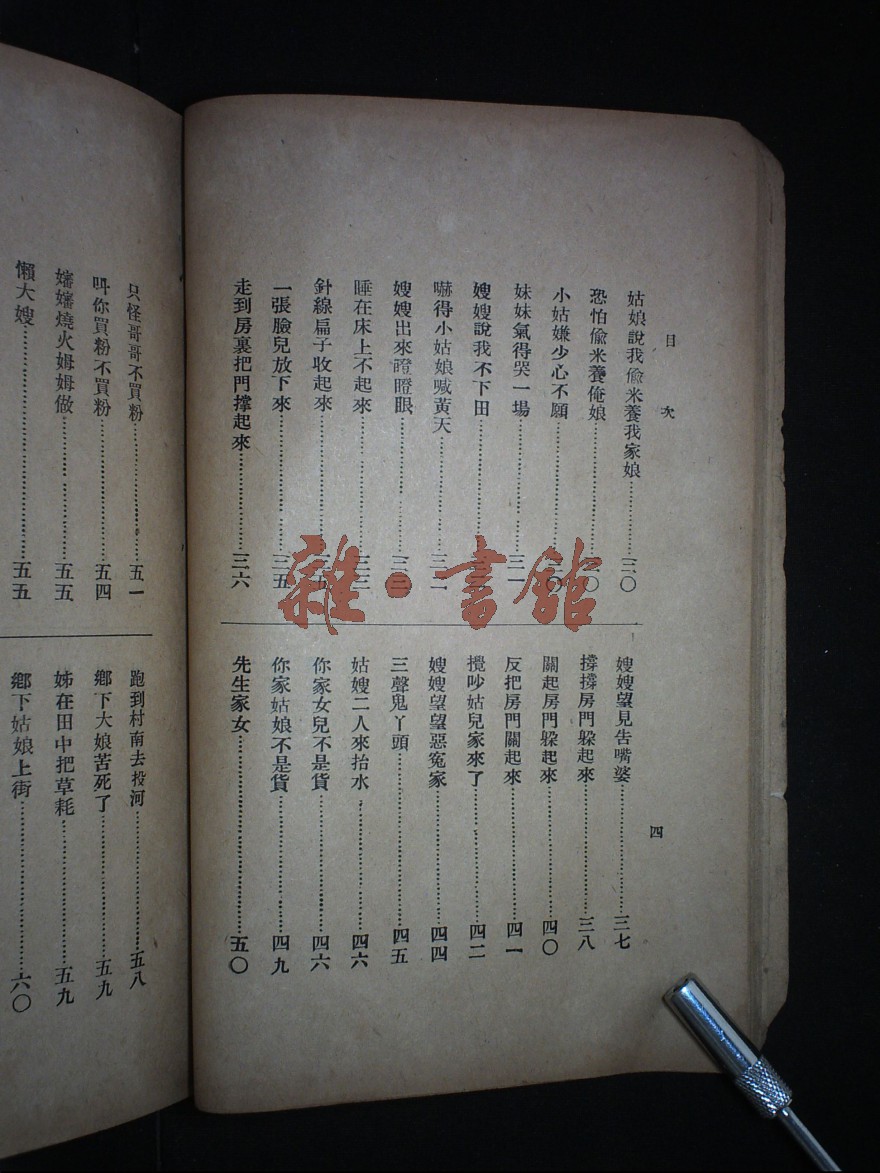 目次
四
姑娘說我偷米養我家娘…三〇
恐怕偷米養俺娘…三〇
小姑嫌少心不願…三〇
妹妹氣得哭一場…三一
嫂嫂說我不下田…
嚇得小姑娘喊黃天…三二
嫂嫂出來瞪瞪眼…三三
睡在床上不起來…三三
針線扁子收起來…三五
一張臉兒放下來…三五
走到房裏把門撐起來…三六
嫂嫂望見告嘴婆…三七
撐撐房門躲起來…三八
關起房門躲起來…四〇
反把房門關起來…四一
攪吵姑兒家來了…四二
嫂嫂望望惡寃家…四四
三聲鬼丫頭…四五
姑嫂二人來抬水…四六
你家女兒不是貨…四六
你家姑娘不是貨…四九
先生家女…五〇
只怪哥哥不買粉…五一
呌你買粉不買粉…五四
嬸嬸燒火姆姆做…五五
懶大嫂…五五
跑到村南去投河…五八
鄉下大娘苦死了…五九
姊在田中把草耗…五九
鄉下姑娘上街…六〇
雜·書館